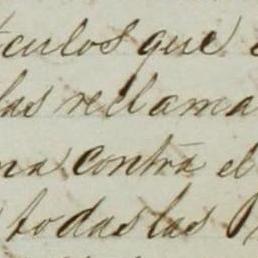 culos que
las reclama
na contra el
todas las